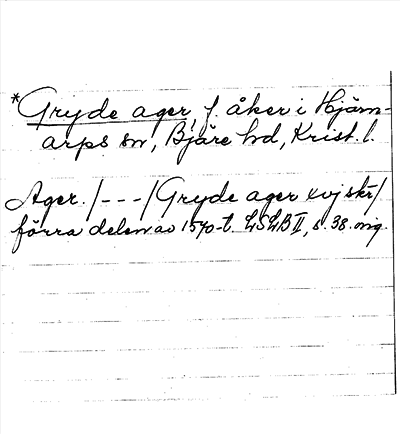 *Gryde ager, f. åker i Hjärn-
arps sn, Bjäre hd, Krist. l.
Ager. /---/ Gryde ager xvj skr /
förra delen av 1570-t. LSLB II, s. 38. orig.